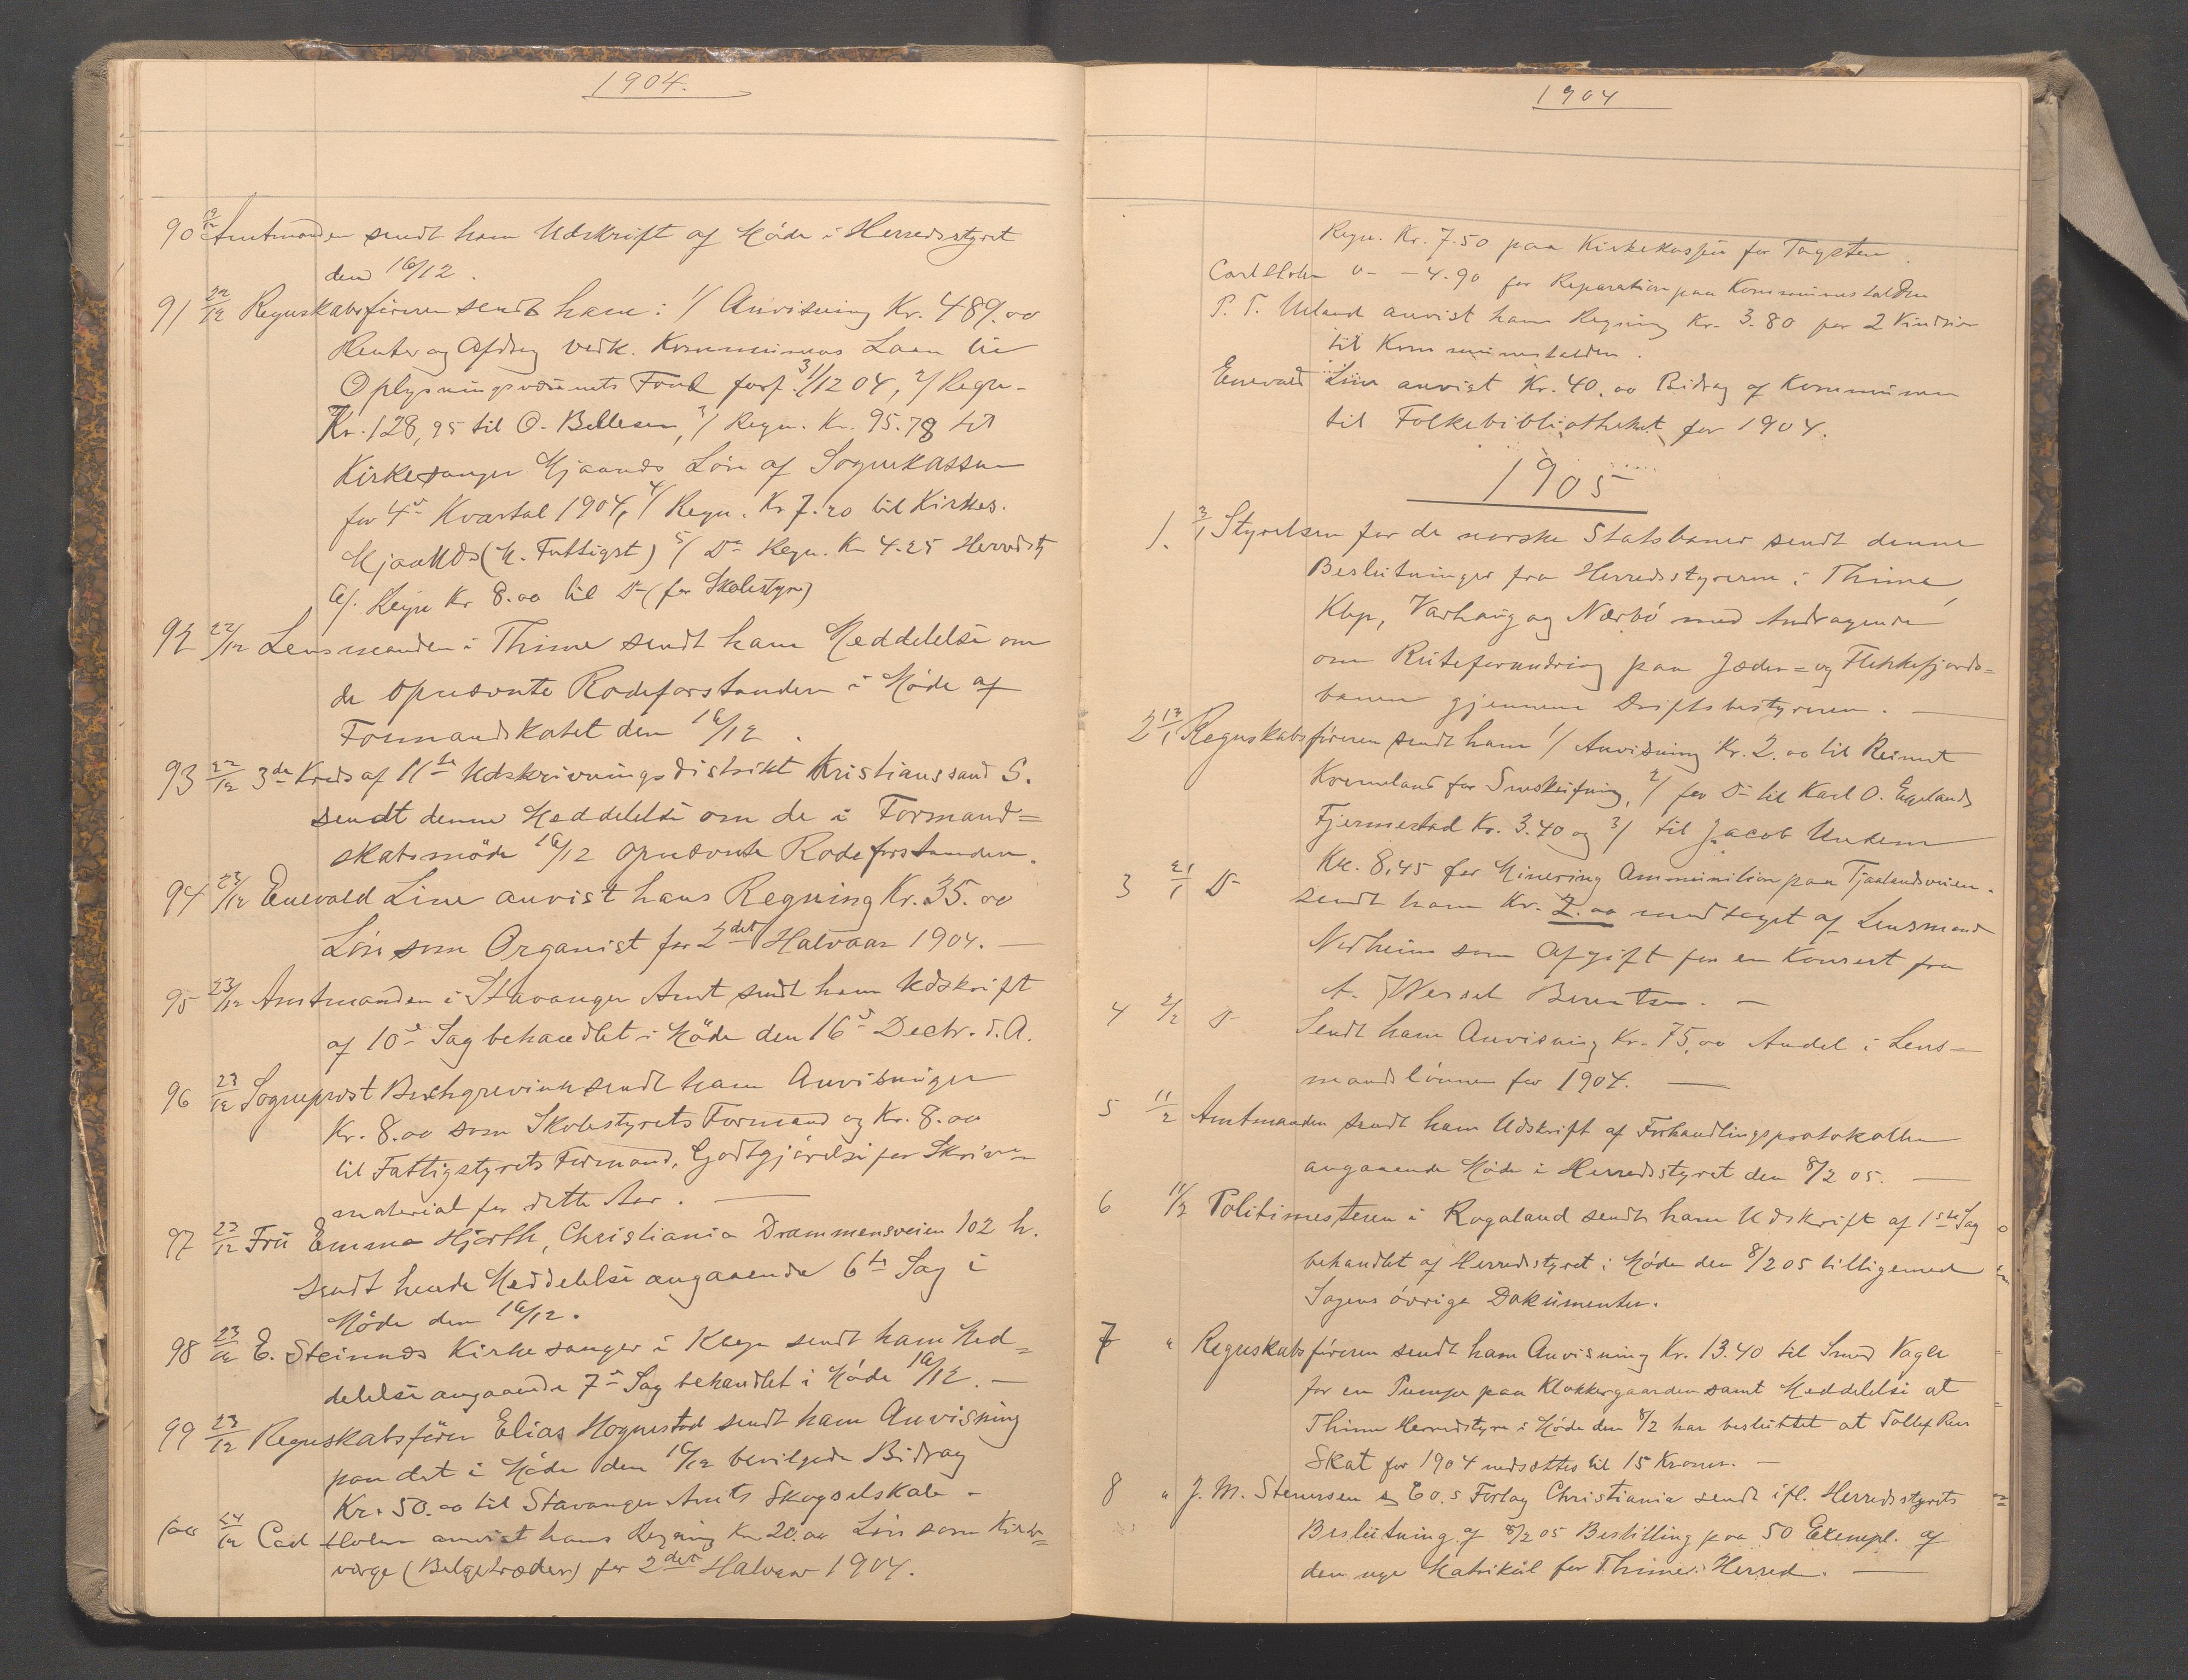 1904.
90 19/12 Amtmanden sendt ham Udskrift af Möde i Herredsstyret
den 16/12.
91 22/12 Regnskabsföreren sendt ham: 1/ Anvisning Kr. 489.00
Renter og Afdrag vedk. Kommunens Laan til
Oplysningsvæsenets Fond forf. 31/12 04, 2/ Regn.
Kr. 128,95 til O. Bellesen, 3/ Regn. Kr. 95.78 til
Kirkesanger Mjaands Lön af Sognekassen
for 4de Kvartal 1904, 4/ Regn. Kr 7.20 til Kirkes.
Mjaands (M. Fattigst) 5/ Do Regn. Kr 4.25 Herredst
6/. Regn Kr 8.00 til Do (for Skolestyre)
92 22/12 Lensmanden i Thime sendt ham Meddelelse om
de opnævnte Rodeforstandere i Möde af
Formandskabet den 16/12.
93 22/12 3de Kreds af 11te Udskrivningsdistrikt Kristianssand S.
sendt denne Meddelelse om de i Formand=
skabsmöde 16/12 opnævnte Rodeforstandere.
94 23/12 Enevald Line anvist hans Regning Kr. 35.00
Lön som Organist for 2det Halvaar 1904. —
95 23/12 Amtmanden i Stavanger Amt sendt ham Udskrift
af 10de Sag behandlet i Möde den 16de Decbr. d.A.
96 23/12 Sogneprest Buchgrevink sendt ham Anvisninger
Kr. 8.00 som Skolestyrets Formand og Kr. 8.00
til Fattigstyrets Formand, Godtgjörelse for Skrive=
material for dette Aar. —
97 23/12 Fru Emma Hjorth, Christiania Drammensveien 102 h.
sendt hende Meddelelse angaaende 6te Sag i
Möde den 16/12.
98 23/12 E. Steinnes Kirkesanger i Klep sendt ham Med=
delelse angaaende 7de Sag behandlet i Möde 16/12. —
99 23/12 Regnskabsförer Elias Hognestad sendt ham Anvisning
paa det i Möde den 16/12 bevilgede Bidrag
Kr. 50.00 til Stavanger Amts Skogselskab –
100 24/12 Carl Holen anvist hans Regning Kr 20.00 Lön som Kirke=
værge (Belgetræder) for 2det Halvaar 1904.
1904
Regn. Kr. 7.50 paa Kirkekassen for Tagsten.
Carl Holen o – – 4.90 for Reparation paa Kommunestalden
P. T. Ueland anvist hans Regning Kr. 3.80 for 2 Vinduer
til Kommunestalden.
Enevald Line anvist Kr. 40.00 Bidrag af Kommunen
til Folkebibliotheket for 1904.
1905
1. 3/1 Styrelsen for de norske Statsbaner sendt denne
Beslutninger fra Herredsstyrerne i Thime,
Klep, Varhaug og Nærbö med Andragende
om Ruteforandring paa Jæder= og Flekkefjords=
banen gjennem Driftsbestyreren. —
2 13/1 Regnskabsföreren sendt ham 1/ Anvisning Kr. 2.00 til Reimert
Kverneland for Sneskuffning, 2/ for Do til Karl O. Egelands
Fjermestad Kr. 3.40 og 3/ til Jacob Undem
Kr. 8,45 for Minering Ammunition paa Tjaalandsveien.
3 21/1 Do sendt ham Kr. 2.00 modtaget af Lensmand
Nedheim som Afgift for en Konsert fra
A. Wessel Berentsen. —
4 2/2 Do Sendt ham Anvisning Kr. 75,00 Andel i Lens=
mandslönnen for 1904. —
5 11/2 Amtmanden sendt ham Udskrift af Forhandlingsprotokollen
angaaende Möde i Herredsstyret den 8/2 05. —
6 11/2 Politimesteren i Rogaland sendt ham Udskrift af 1ste Sag
behandlet af Herredsstyret i Möde den 8/2 05 tilligemed
Sagens övrige Dokumenter.
7 " Regnskabsföreren sendt ham Anvisning Kr. 13.40 til Smed Vagle
for en Pumpe paa Klokkergaarden samt Meddelelse at
Thime Herredsstyre i Möde den 8/2 har besluttet at Tollef Rees
Skat for 1904 nedsættes til 15 Kroner. —
8 " J. M. Stenersen & Co.s Forlag Christiania sendt ifl. Herredsstyrets
Beslutning af 8/2 05 Bestilling paa 50 Exempl. af
den nye Matrikul for Thime Herred. —